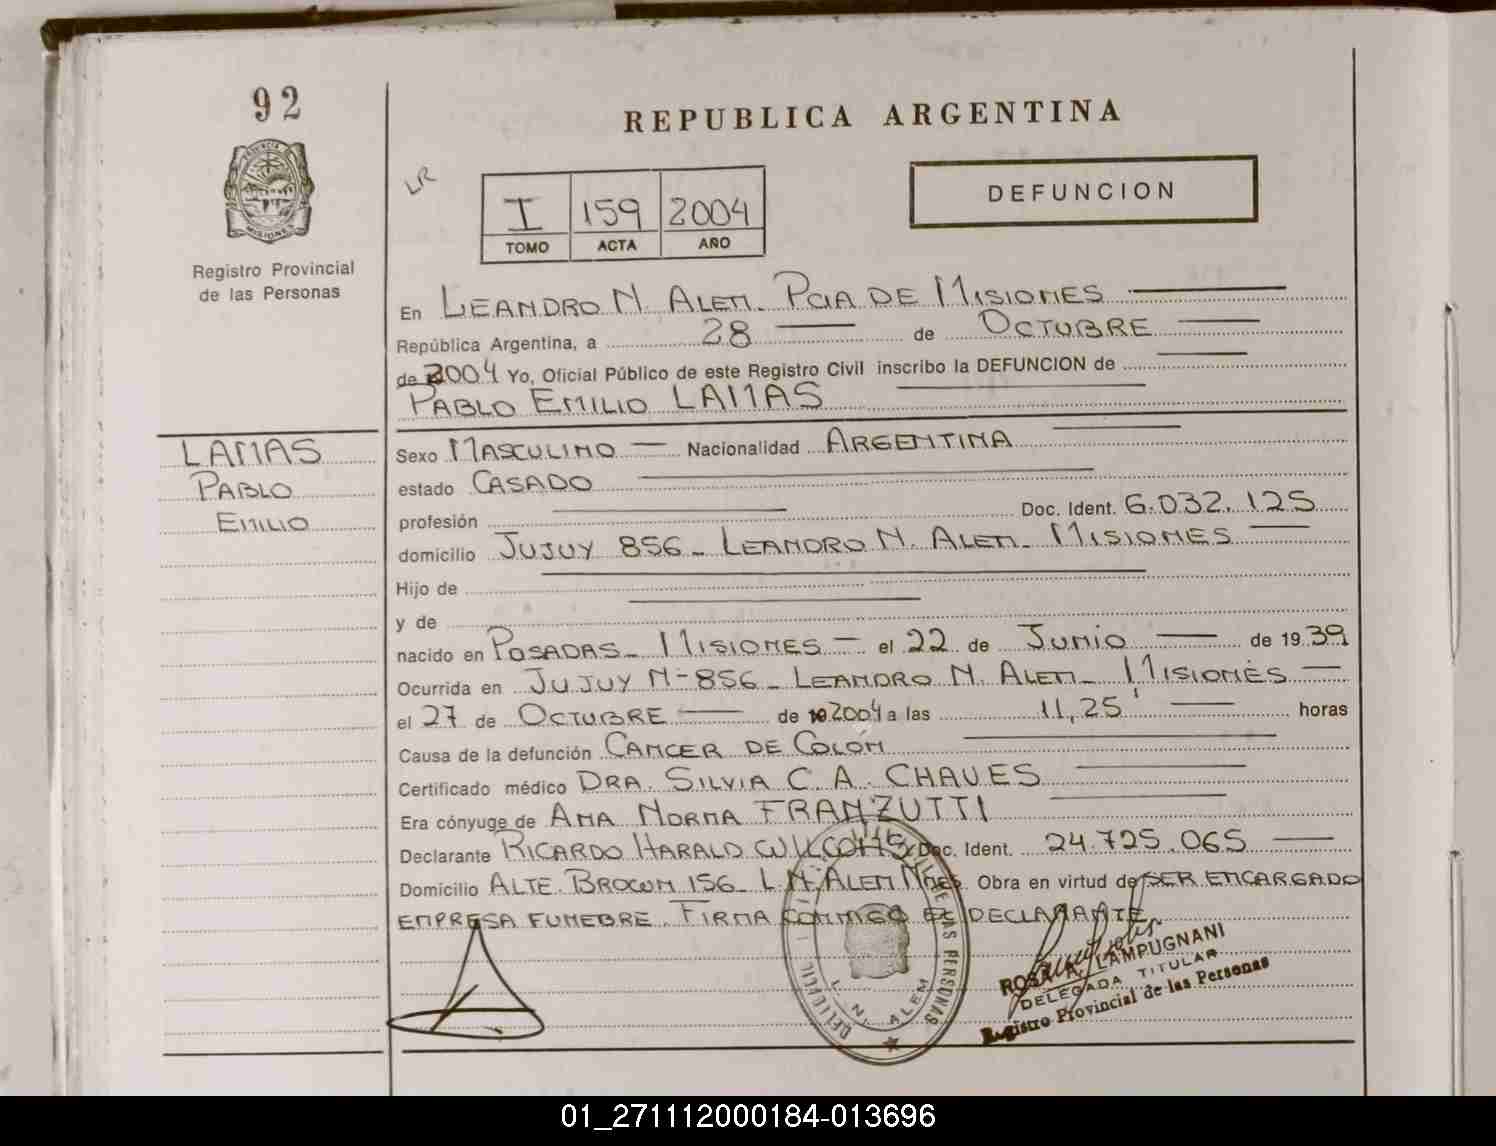 92
REPUBLICA ARGENTINA
LR
DEFUNCION
I 159 2004
TOMO ACTA AÑO
PROVINCIA
MISIONES
Registro Provincial
de las Personas
En LEANDRO N. ALEM. PCIA DE MISIONES
República Argentina, a 28 de OCTUBRE
de 2004 Yo, Oficial Público de este Registro Civil inscribo la DEFUNCION de
PABLO EMILIO LAMAS
LAMAS
PABLO
EMILIO
Sexo MASCULINO Nacionalidad ARGENTINA
estado CASADO
profesión Doc. Ident. 6.032.125
domicilio JUJUY 856 - LEANDRO N. ALEM - MISIONES
Hijo de
y de
nacido en POSADAS - MISIONES - el 22 de JUNIO de 1939
Ocurrida en JUJUY N-856 - LEANDRO N. ALEM - MISIONES
el 27 de OCTUBRE de 2004 a las 11,25' horas
Causa de la defunción CANCER DE COLON
Certificado médico DRA. SILVIA C. A. CHAVES
Era cónyuge de ANA NORMA FRANZUTTI
Declarante RICARDO HARALD Doc. Ident. 24.725.065
Domicilio ALTE. BROWN 156 - L.N. ALEM MNES. Obra en virtud de SER ENCARGADO
EMPRESA FUNEBRE. FIRMA CONMIGO EL DECLARANTE
DE LAS PERSONAS
L. N. ALEM
ROSA A. LAMPUGNANI
DELEGADA TITULAR
Registro Provincial de las Personas
01_271112000184-013696